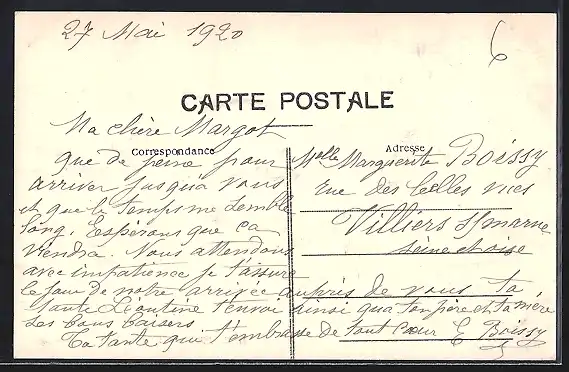 27 Mai 1920
6
CARTE POSTALE
Ma chère Margot
Correspondance
Que de peine pour
arriver jusqua vous
et que le temps me semble
long. Espérons que ca
viendra. Nous attendons
avec impatience je t'assure
le jour de notre arrivée auprès de vous ta
tante Léontine t'envoi ainsi qua ton père et ta mère
Les bons baisers
Ta tante qui t'embrasse de tout cœur E. Boissy
Adresse
Melle Marguerite Boissy
rue des belles vues
Villiers s/marne
Seine et oise